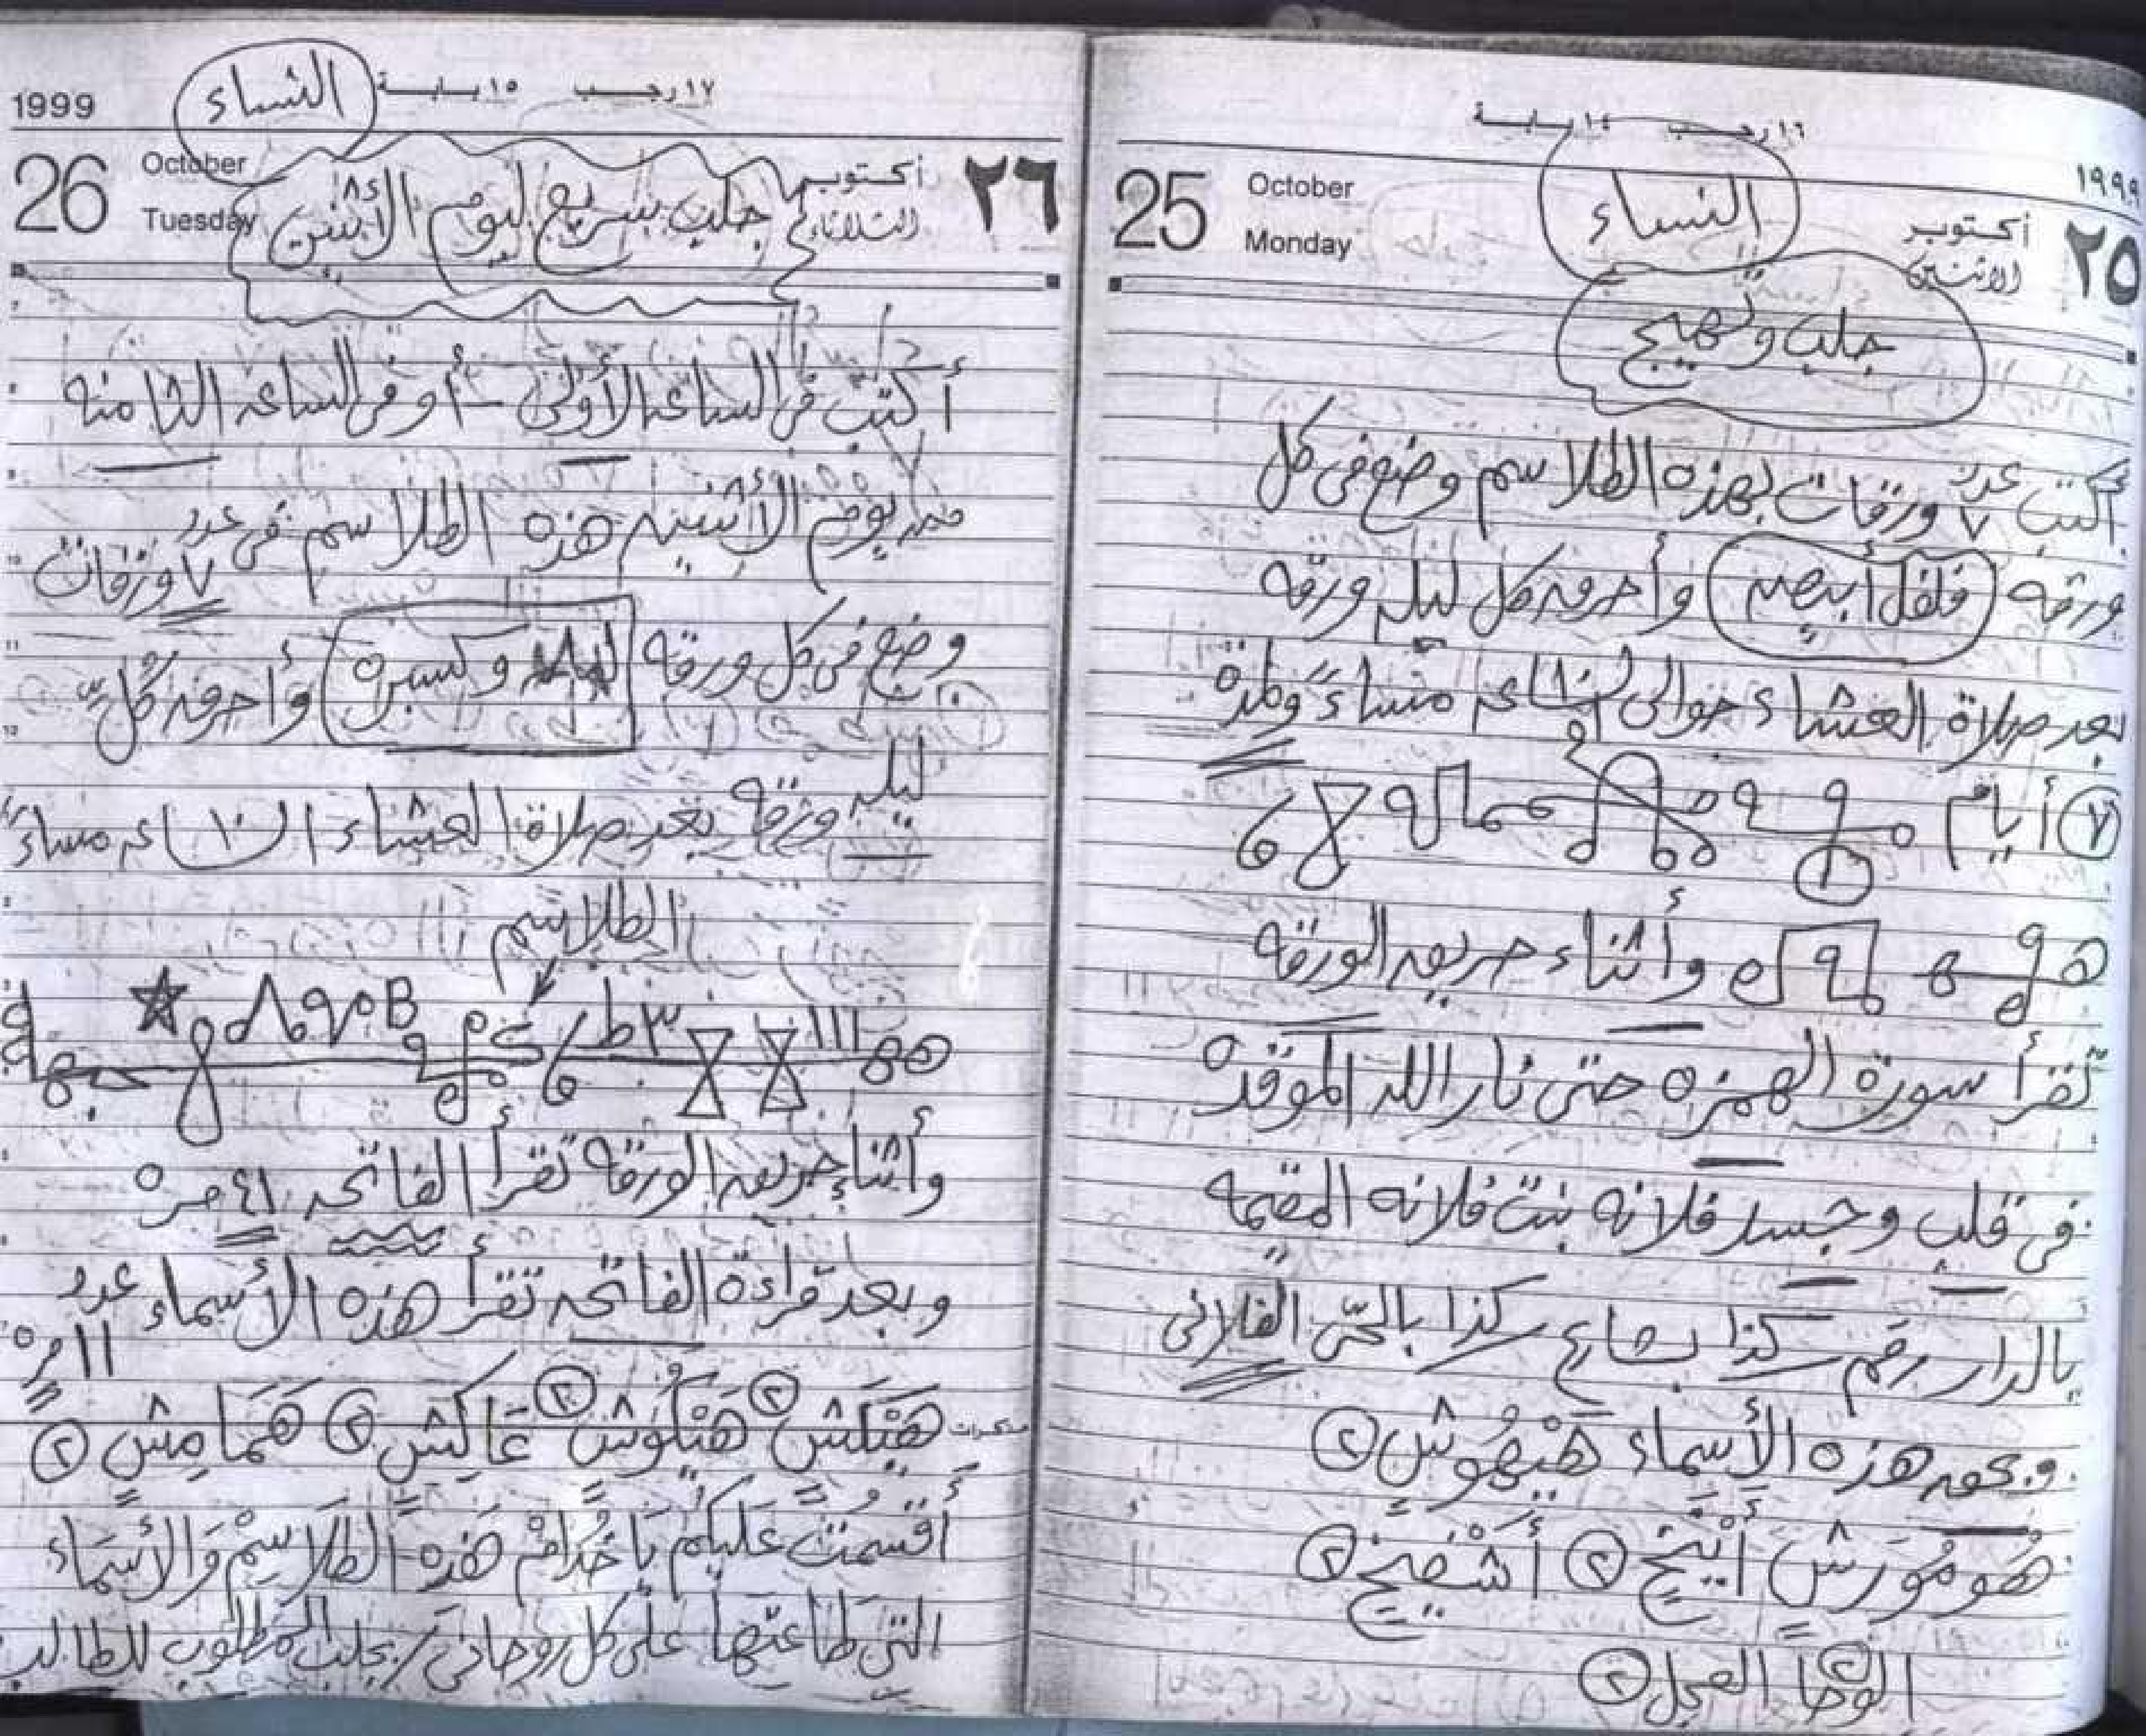 ١٦ رجب ١٤ بابة
١٩٩٩
25 October أكتوبر ٢٥
Monday الاثنين
النساء
جلب وتهيج
أكتب عدد ٧ ورقات بهذه الطلاسم وضع في كل
ورقه فلفل أبيض وأحرق كل ليله ورقه
بعد صلاة العشاء حوالي ١٠ مساءً ولمدة
٧ أيام
وأثناء حريق الورقه
تقرأ سورة الهمزه حتى نار الله الموقده
في قلب وجسد فلانه بنت فلانه المقيمه
بالدار رقم كذا بشارع كذا بالحي الفلاني
وبحق هذه الأسماء هَيْهُوش ٢
هُومُورَش أَيَنِخ ٢ أَشْمَخ ٢
الوحا ٢ العجل ٢
١٧ رجب ١٥ بابة
1999
26 October أكتوبر ٢٦
Tuesday الثلاثاء
النساء
جلب سريع ليوم الأثنين
أكتب في الساعه الأولى - أو في الساعه الثامنه
من يوم الأثنين هذه الطلاسم في عدد
٧ ورقات
وضع في كل ورقه وكسبره وأحرق كل
ليله ورقه بعد صلاة العشاء ال ١٠ مساءً
الطلاسم
وأثناء حريق الورقه تقرأ الفاتحه ٤١ مره
وبعد قراءة الفاتحه تقرأ هذه الأسماء عدد
١١ مره
مذكرات
هَيْكَش ٢ هَيْلُوش ٢ عَاكِش ٢ هَمَامِش ٢
أقسمت عليكم يَا خُدام هَذه الطَلاَسِمْ وَالأَسْمَاء
التي طَاعتها على كل روحاني / بجلب المطلوب للطالب